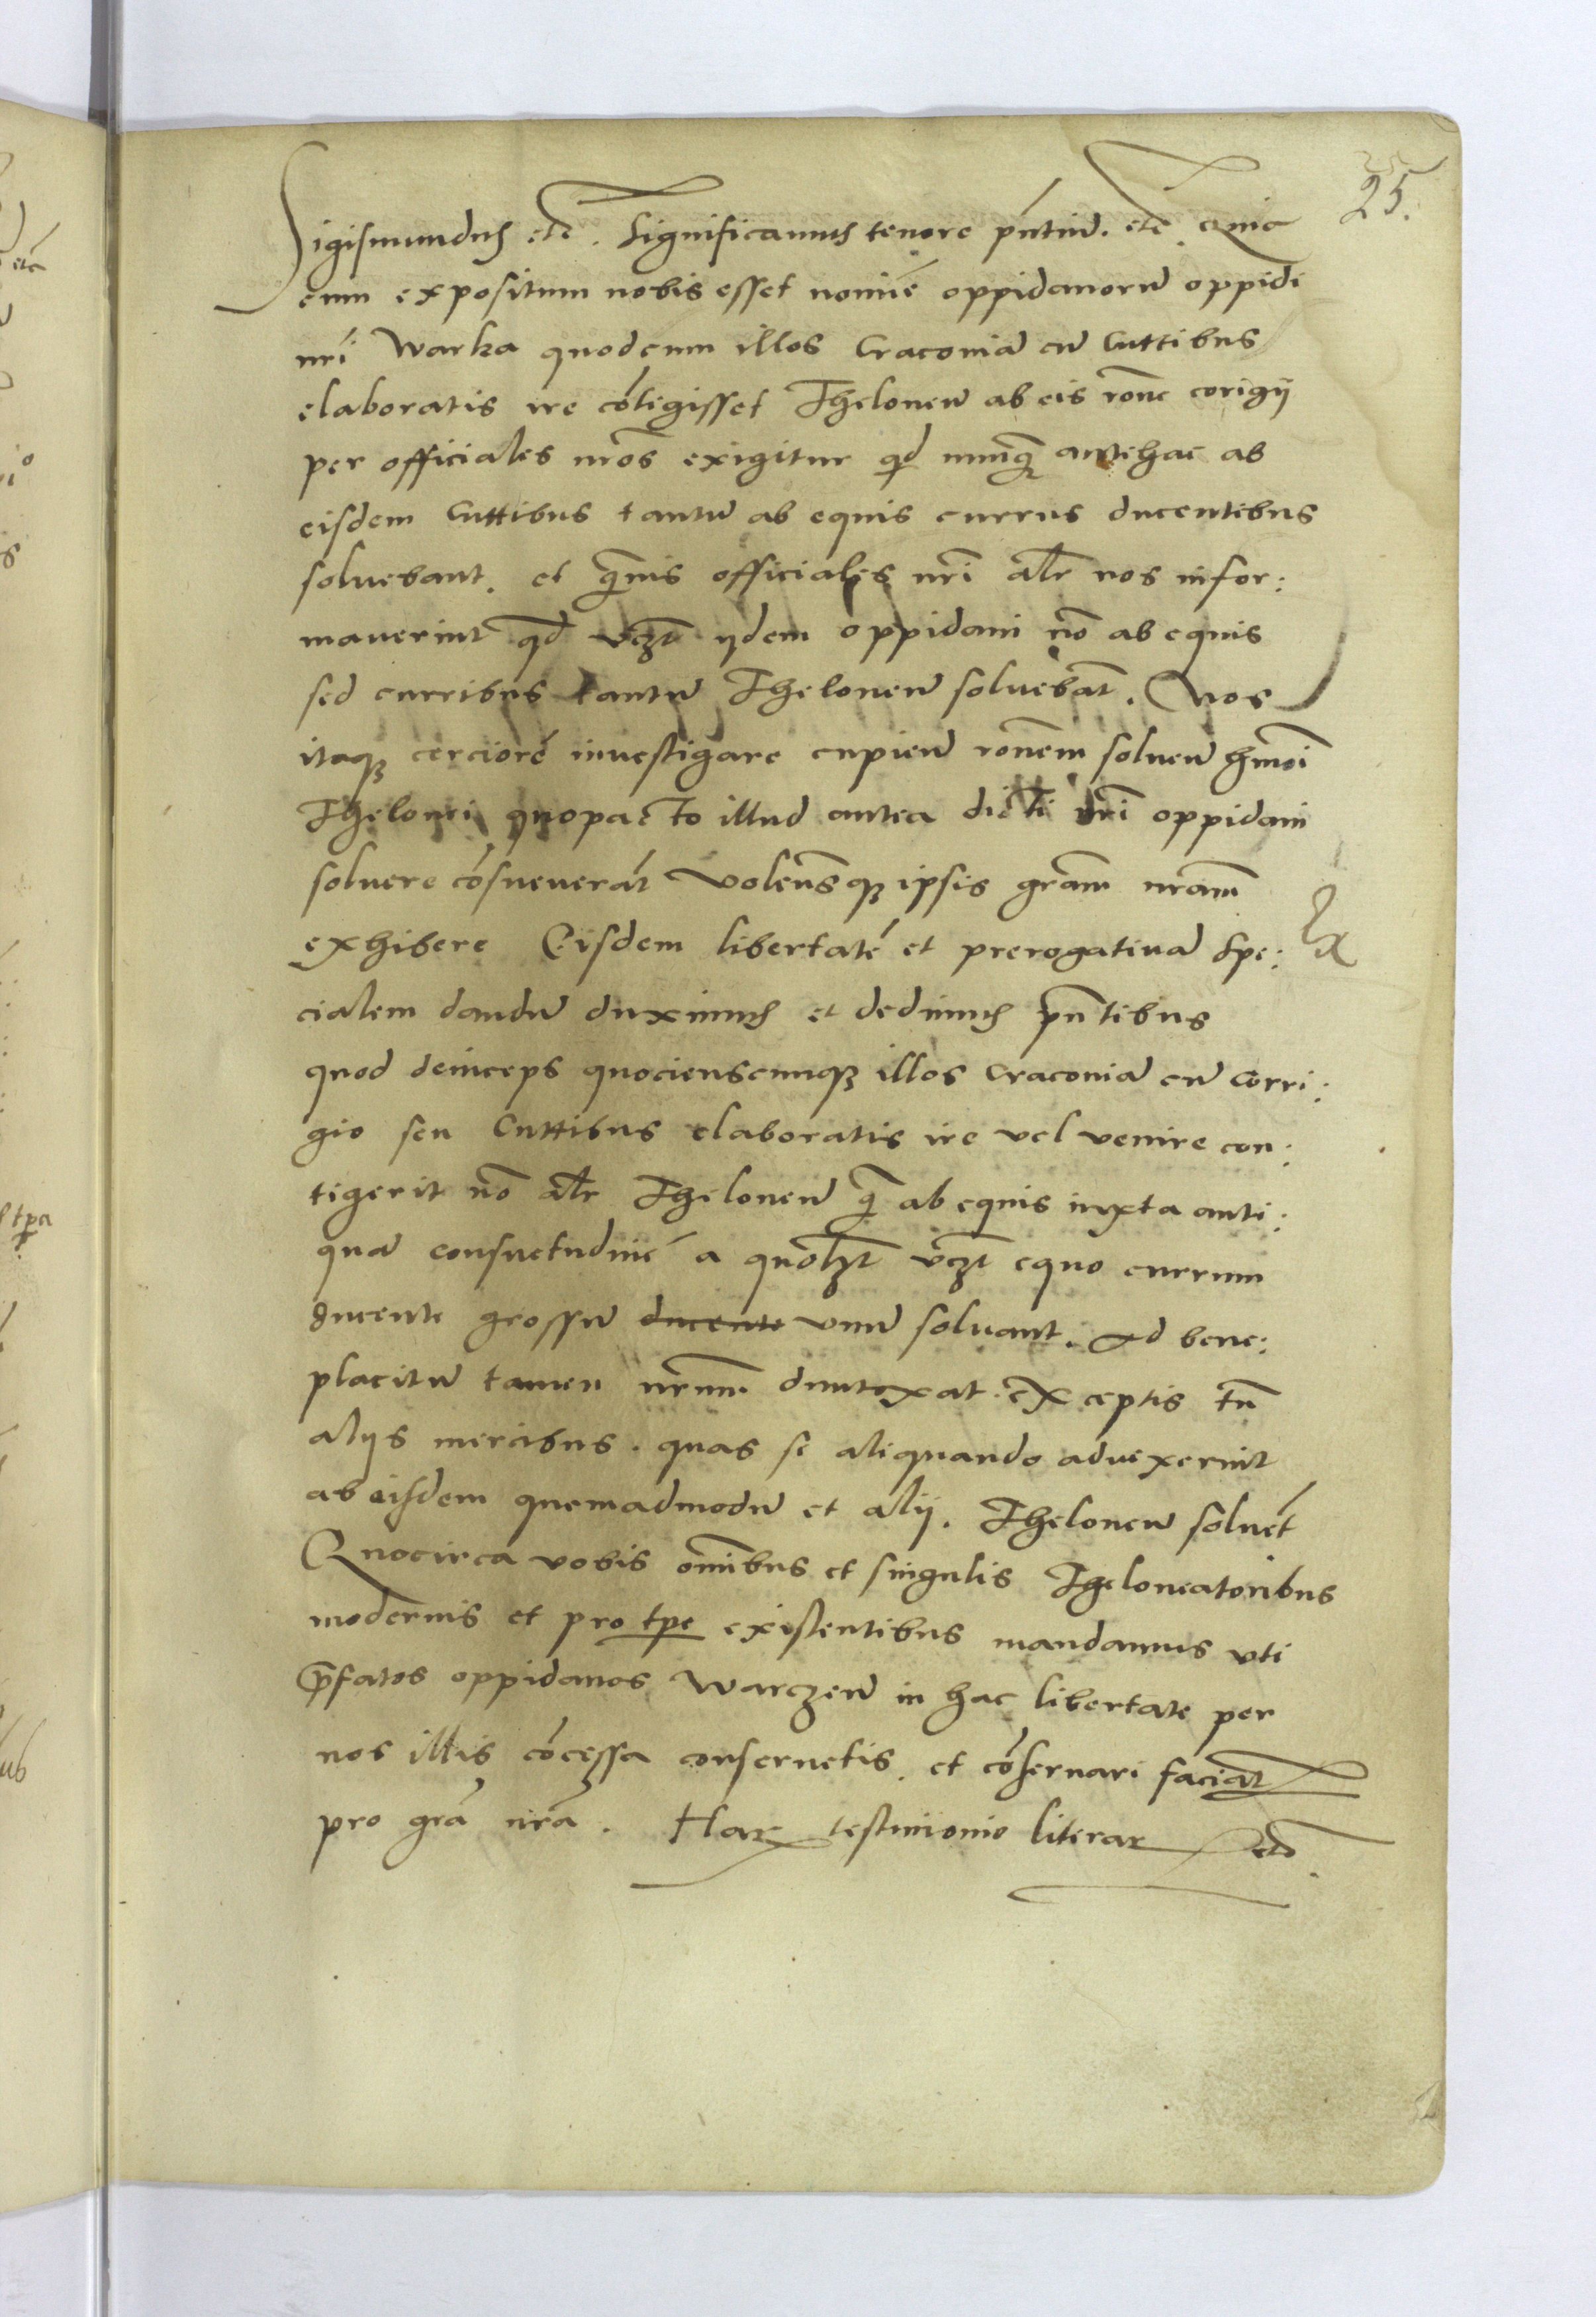 25.
Sigismundus etc. Significamus tenore pñtiũ. etc. Quia
cum expositum nobis esset nomiē oppidanorũ oppidi
nr̃i Warka quod cum illos Cracoviã cũ Cuttibus
elaboratis ire cõtigisset Theloneũ ab eis rõne corigÿ
per officiales nr̃os exigitur qd nunq̃ antehac ab
eisdem Cuttibus tantũ ab equis currus ducentibus
soluebant. et q̃uis officiales nr̃i alr̃ nos infor:
mauerint qd vcz̃t ÿdem oppidani nõ ab equis
sed curribus tantũ Theloneũ soluebãt. Nos
itaqz cerciorẽ inuestigare cupieñ rõnem solueñ hmõi
Thelonei quopacto illud antea dicti nr̃i oppidani
soluere cõsueuerãt volensqz ipsis gr̃am nr̃am
exhibere Eisdem libertatẽ et prerogatiuã spe:
cialem dandũ duximus et dedimus pñtibus
quod deinceps quocienscumqz illos Cracoviã cũ Corri:
gio seu Cuttibus elaboratis ire vel venire con:
tigerit nõ alr̃ Theloneũ q̃ ab equis iuxta anti:
quã consuetudinẽ a quolz̃t vcz̃t equo currum
ducente grossũ ducente vnũ soluant. Ad bene:
placitũ tamen nr̃um duntaxat. exceptis tñ
alÿs mercibus. quas si aliquando aduexerint
ab eisdem quemadmodũ et alÿ. Theloneũ soluẽt
Quocirca vobis om̃ibus et singulis Theloneatoribus
modernis et pro tpe existentibus mandamus vti
p̃fatos oppidanos Warczeñ in hac libertate per
nos illis cõcessa conseruetis. et cõseruari faciat
pro gr̃a nr̃a. Har testimonio literar etc.